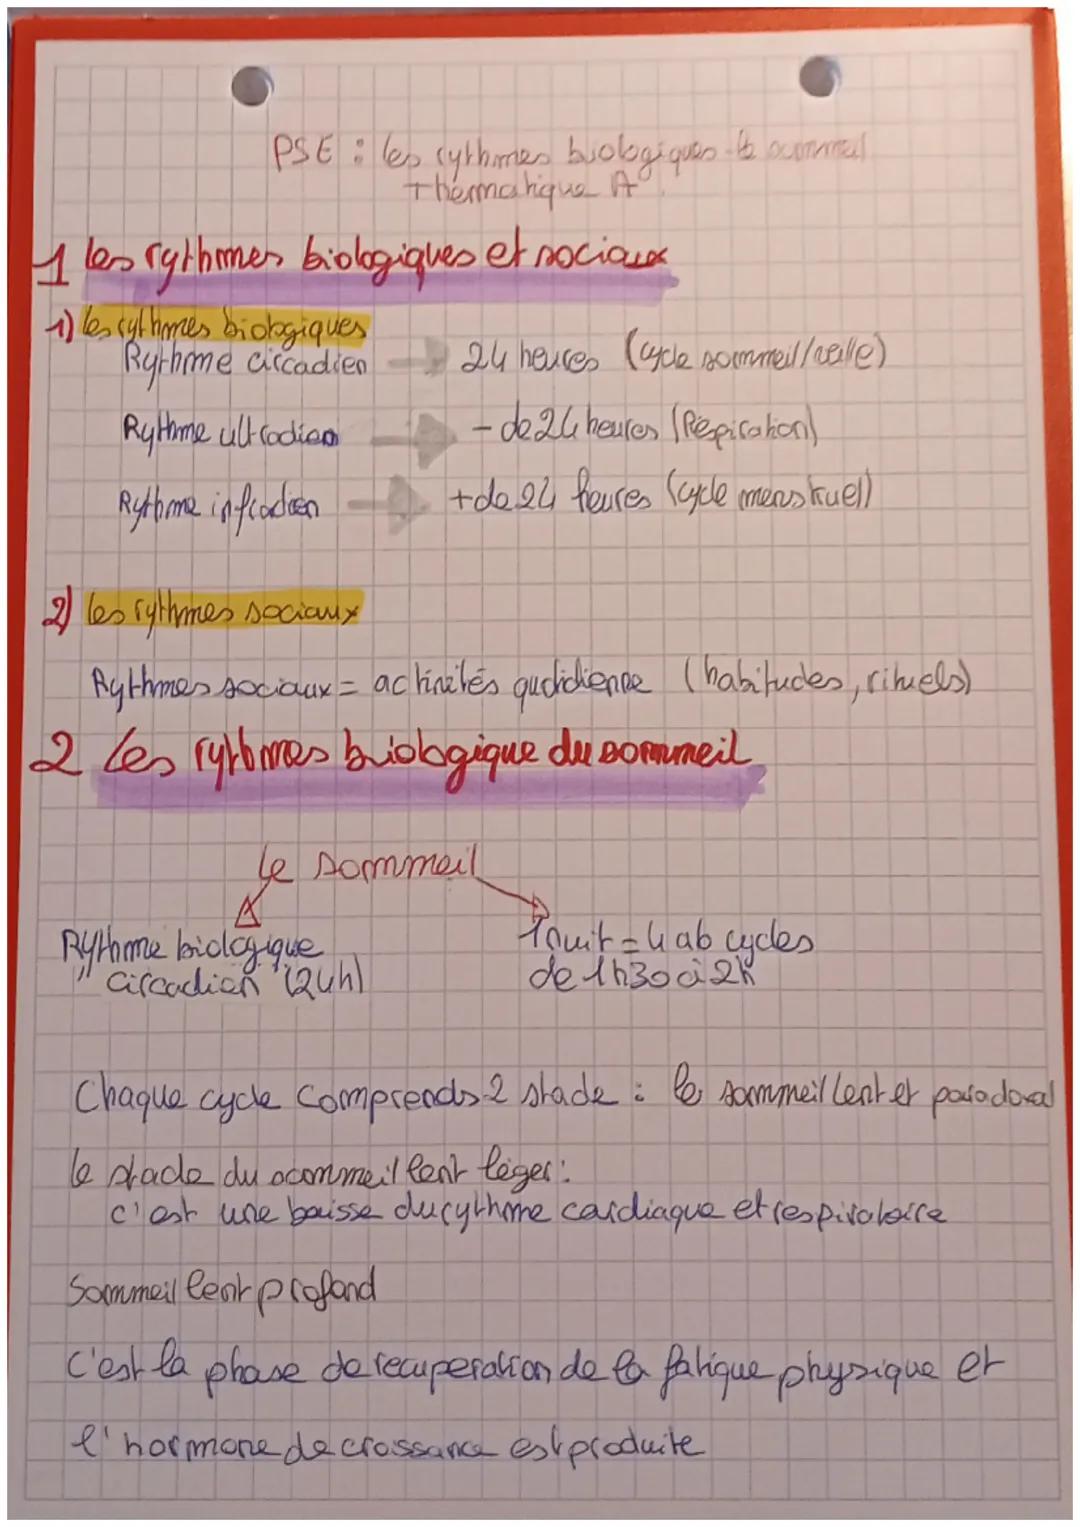 PSE : les rythmes biologiques le sommeil
Thérmatique A
1 les rythmes biologiques et sociaux
1) les rythmes biologiques
Rythme circadien 24 heures (cycle sommeil/veille)
Rythme ultradien - de 24 heures (Respiration)
Rythme infradien + de 24 heures (cycle menstruel)
2) les rythmes sociaux
Rythmes sociaux = activités quotidienne (habitudes, rituels)
2 Les rythmes biologique du sommeil
Le sommeil
Rythme biologique
"circadien" (24h)
1 nuit = 4 à 6 cycles
de 1h30 à 2h
Chaque cycle comprends 2 stade : le sommeil lent et paradoxal
le stade du sommeil lent léger :
c'est une baisse du rythme cardiaque et respiratoire
Sommeil lent profond
C'est la phase de recuperation de la fatique physique et
l'hormone de croissance est produite